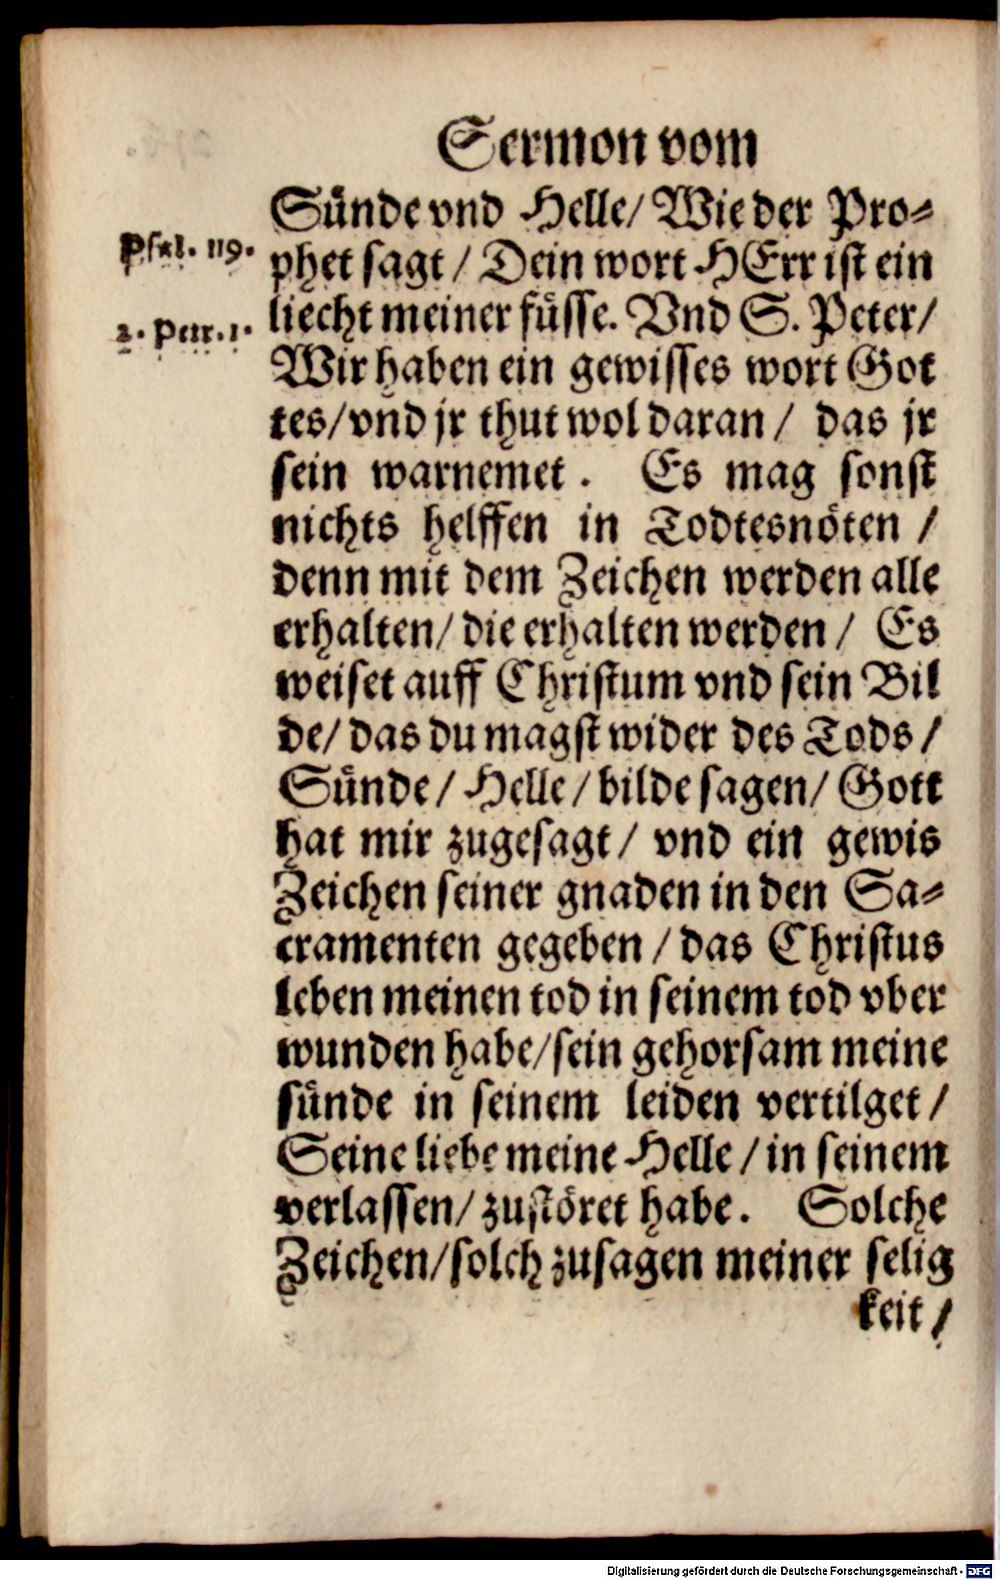 Sermon vom
Sünde vnd Helle/ Wie der Pro-
Psal. 119.
phet sagt / Dein wort HErr ist ein
liecht meiner füsse. Vnd S. Peter/
2. Petr. 1.
Wir haben ein gewisses wort Got
tes/ vnd jr thut wol daran / das jr
sein warnemet. Es mag sonst
nichts helffen in Todtesnöten /
denn mit dem Zeichen werden alle
erhalten/ die erhalten werden / Es
weiset auff Christum vnd sein Bil
de/ das du magst wider des Tods /
Sünde / Helle / bilde sagen/ Gott
hat mir zugesagt / vnd ein gewis
Zeichen seiner gnaden in den Sa-
cramenten gegeben / das Christus
leben meinen tod in seinem tod vber
wunden habe/ sein gehorsam meine
sünde in seinem leiden vertilget /
Seine liebe meine Helle / in seinem
verlassen/ zustöret habe. Solche
Zeichen/ solch zusagen meiner selig
keit /
Digitalisierung gefördert durch die Deutsche Forschungsgemeinschaft - DFG